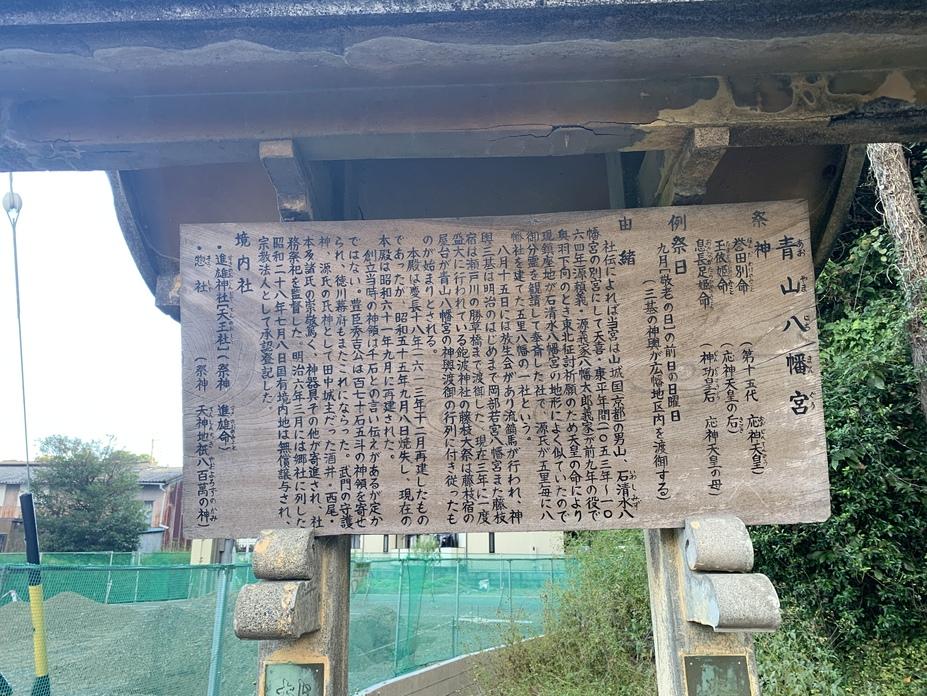 青山八幡宮
祭神
誉田別命 (第十五代 応神天皇)
玉依姫命 (応神天皇の后)
息長足姫命 (神功皇后 応神天皇の母)
例祭日
九月「敬老の日」の前日の日曜日
(三基の神輿が広幡地区内を渡御する)
由緒
社伝によれば当宮は山城国(京都)の男山、石清水八
幡宮の別宮にして天喜・康平年間(一〇五三年~一〇
六四年)源頼義・源義家(八幡太郎義家)が前九年の役で
奥羽下向のとき東北征討祈願のため天皇の命により
現鎮座地が石清水八幡宮の地形によく似ていたので
御分霊を観請して奉斎した社で、源氏が五里毎に八
幡社を建てた五里八幡の一社という。
八月十五日には放生会があり流鏑馬が行われ、神
輿三基は明治のはじめまで岡部若宮八幡宮また藤枝
宿は瀬戸川の勝草橋まで渡御した。現在三年に一度
盛大に行われている飽波神社の藤枝大祭は藤枝宿の
屋台が青山八幡宮の神輿渡御の行列に付き従ったも
のが始まりとされる。
本殿は慶長十八年(一六一三年)十二月再建したもの
であったが、昭和五十五年九月八日焼失し、現在の
本殿は昭和六十一年九月に再建された。
創立当時の神領は千石との言い伝えがあるが定か
ではない。豊臣秀吉公は百七十石五斗の神領を寄せ
られ、徳川幕府もまたこれにならった。武門の守護
神、源氏の氏神として田中城主だった酒井・西尾・
本多諸氏の崇敬篤く、神器具その他が寄進され、社
務祭祀を監督した。明治六年三月には郷社に列した
昭和二十八年七月八日国有境内地は無償譲与され、
宗教法人として承認登記した
境内社
・進雄神社[天王社] (祭神 進雄命)
・惣社 (祭神 天神地祇八百萬の神)